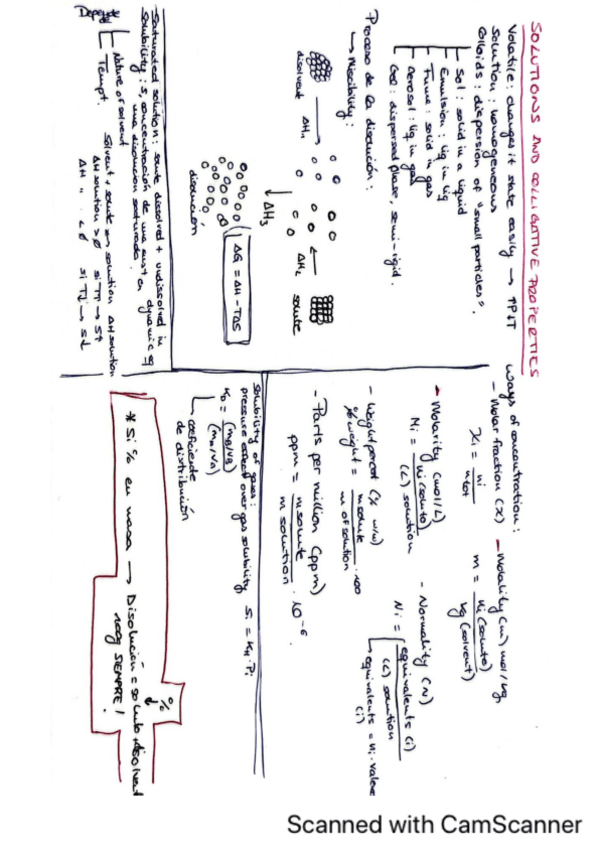 SOLUTIONS AND COLLIGATIVE PROPERTIES
Volatile: changes it state easily → ↑P↓T
Solution: homogeneous
Colloids: dispersion of "small particles".
Sol: solid in a liquid
Emulsion: liq in liq
Fume: solid in gas
Aerosol: liq in gas
Gel: dispersed phase, semi-rigid.
Proceso de la disolución:
→ Miscibility:
disolvent ΔH₁
ΔH₂ solute
ΔH₃
disolución
ΔG = ΔH - TΔS
Saturated solution: solute dissolved + undissolved in dynamic eq
Solubility: S, concentración de una sust en
una disolución saturada.
Depende
Nature of solvent
Tempt.
Solvent + solute ⇌ solution ΔH solution
ΔH solution > 0 si T↑ → S↑
ΔH " < 0 si T↓ → S↓
Ways of concentration:
- Molar fraction (X)
Xi = ni / ntot
- Molality (m) mol/kg
m = ni (soluto) / kg (solvent)
- Molarity (mol/L)
Mi = ni (soluto) / (L) solution
- Normality (N)
Ni = equivalents (i) / (L) solution
equivalents = ni · valence
(i)
- Weight percent (% w/w)
% weight = m solute / m of solution · 100
- Parts per million (ppm)
ppm = m solute / m solution · 10⁻⁶
Solubility of gases:
pressure effect over gas solubility Si = KH · Pi
KD = (mB/VB) / (mA/VA)
coeficiente
de distribución
%
* Si % en masa → Disolución = soluto + disolvent
100g SIEMPRE!
Scanned with CamScanner